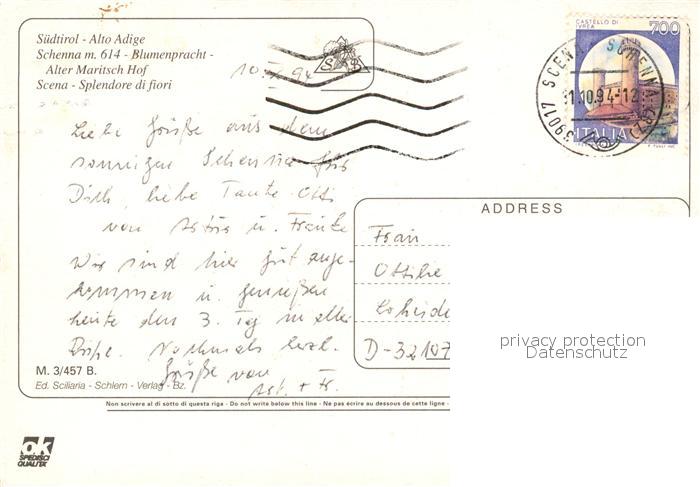 Südtirol - Alto Adige
Schenna m. 614 - Blumenpracht -
Alter Maritsch Hof
Scena - Splendore di fiori
CASTELLO DI IVREA
700
ITALIA
39017 SCENA SCHENNA (BZ)
11.10.94-12
10. 94
Liebe Grüße aus dem
sonnigen Schenna für
Dich, liebe Tante Otti
von Astrid u. Frauke
Wir sind hier gut ange-
kommen u. genießen
heute den 3. Tag in aller
Ruhe. Nochmals herzl.
Grüße von
Ast. + Fr.
ADDRESS
Frau
Ottilie
D-32107
privacy protection
Datenschutz
M. 3/457 B.
Ed. Sciliaria - Schlern - Verlag - Bz.
Non scrivere al di sotto di questa riga - Do not write below this line - Ne pas écrire au dessous de cette ligne -
ok
SPEDISCI
QUALITA'